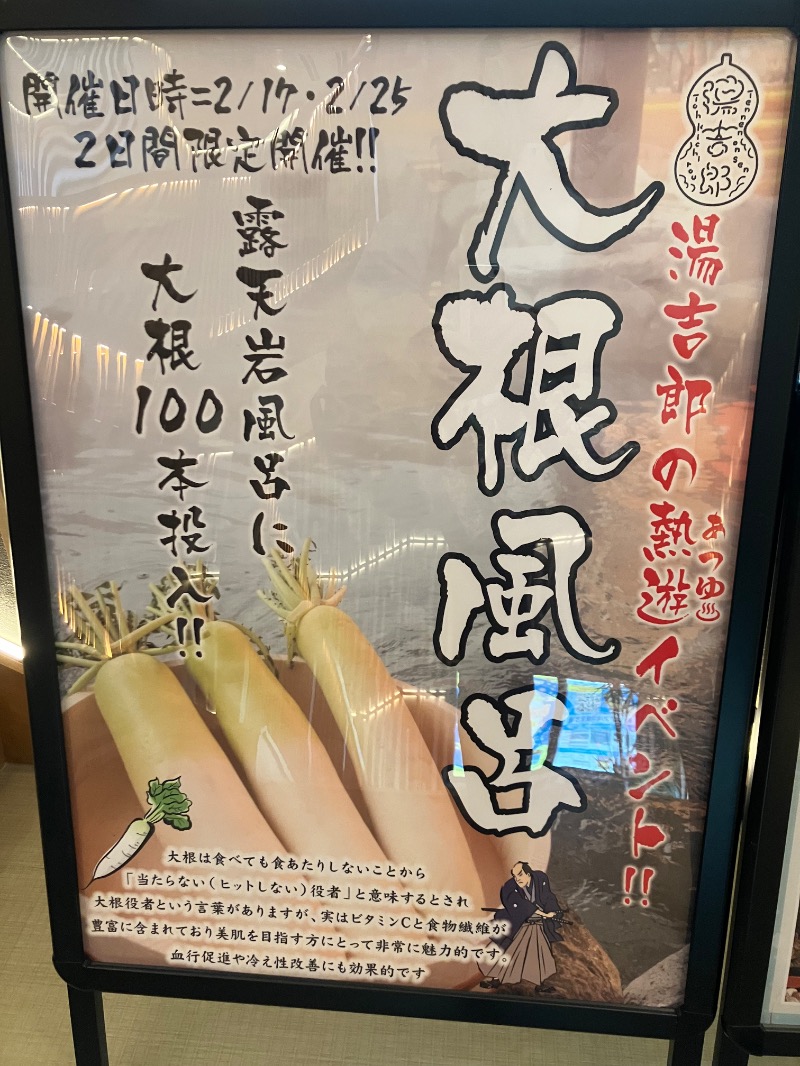 開催日時=2/17・2/25
2日間限定開催!!
湯吉郎
Tennen Onsen
Tohkichirou
湯吉郎の熱遊イベント!!
あつゆ
大根風呂
露天岩風呂に
大根100本投入!!
大根は食べても食あたりしないことから
「当たらない(ヒットしない)役者」と意味するとされ
大根役者という言葉がありますが、実はビタミンCと食物繊維が
豊富に含まれており美肌を目指す方にとって非常に魅力的です。
血行促進や冷え性改善にも効果的です